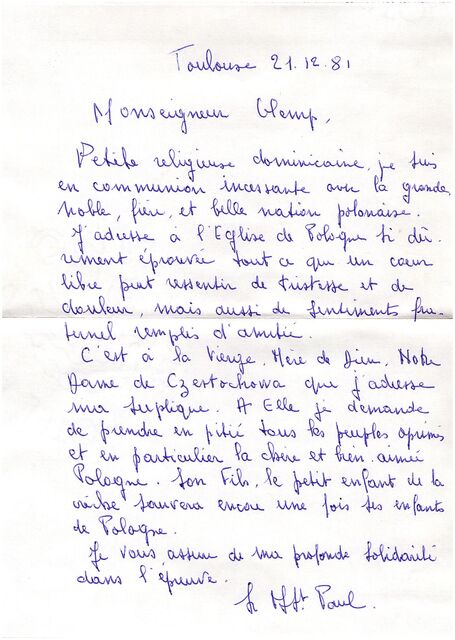 Toulouse 21.12.81
Monseigneur Glemp,
Petite religieuse dominicaine, je suis
en communion incessante avec la grande,
noble, fière, et belle nation polonaise.
J'adresse à l'Eglise de Pologne si dû-
rement éprouvée tout ce que un cœur
libre peut ressentir de tristesse et de
douleur, mais aussi de sentiments fra-
ternel remplis d'amitié.
C'est à la Vierge, Mère de Dieu, Notre
Dame de Czestochowa que j'adresse
ma suplique. A Elle je demande
de prendre en pitié tous les peuples oprimés
et en particulier la chère et bien-aimée
Pologne. Son Fils, le petit enfant de la
crèche sauvera encore une fois ses enfants
de Pologne.
Je vous assure de ma profonde solidarité
dans l'épreuve.
Sr Paul.